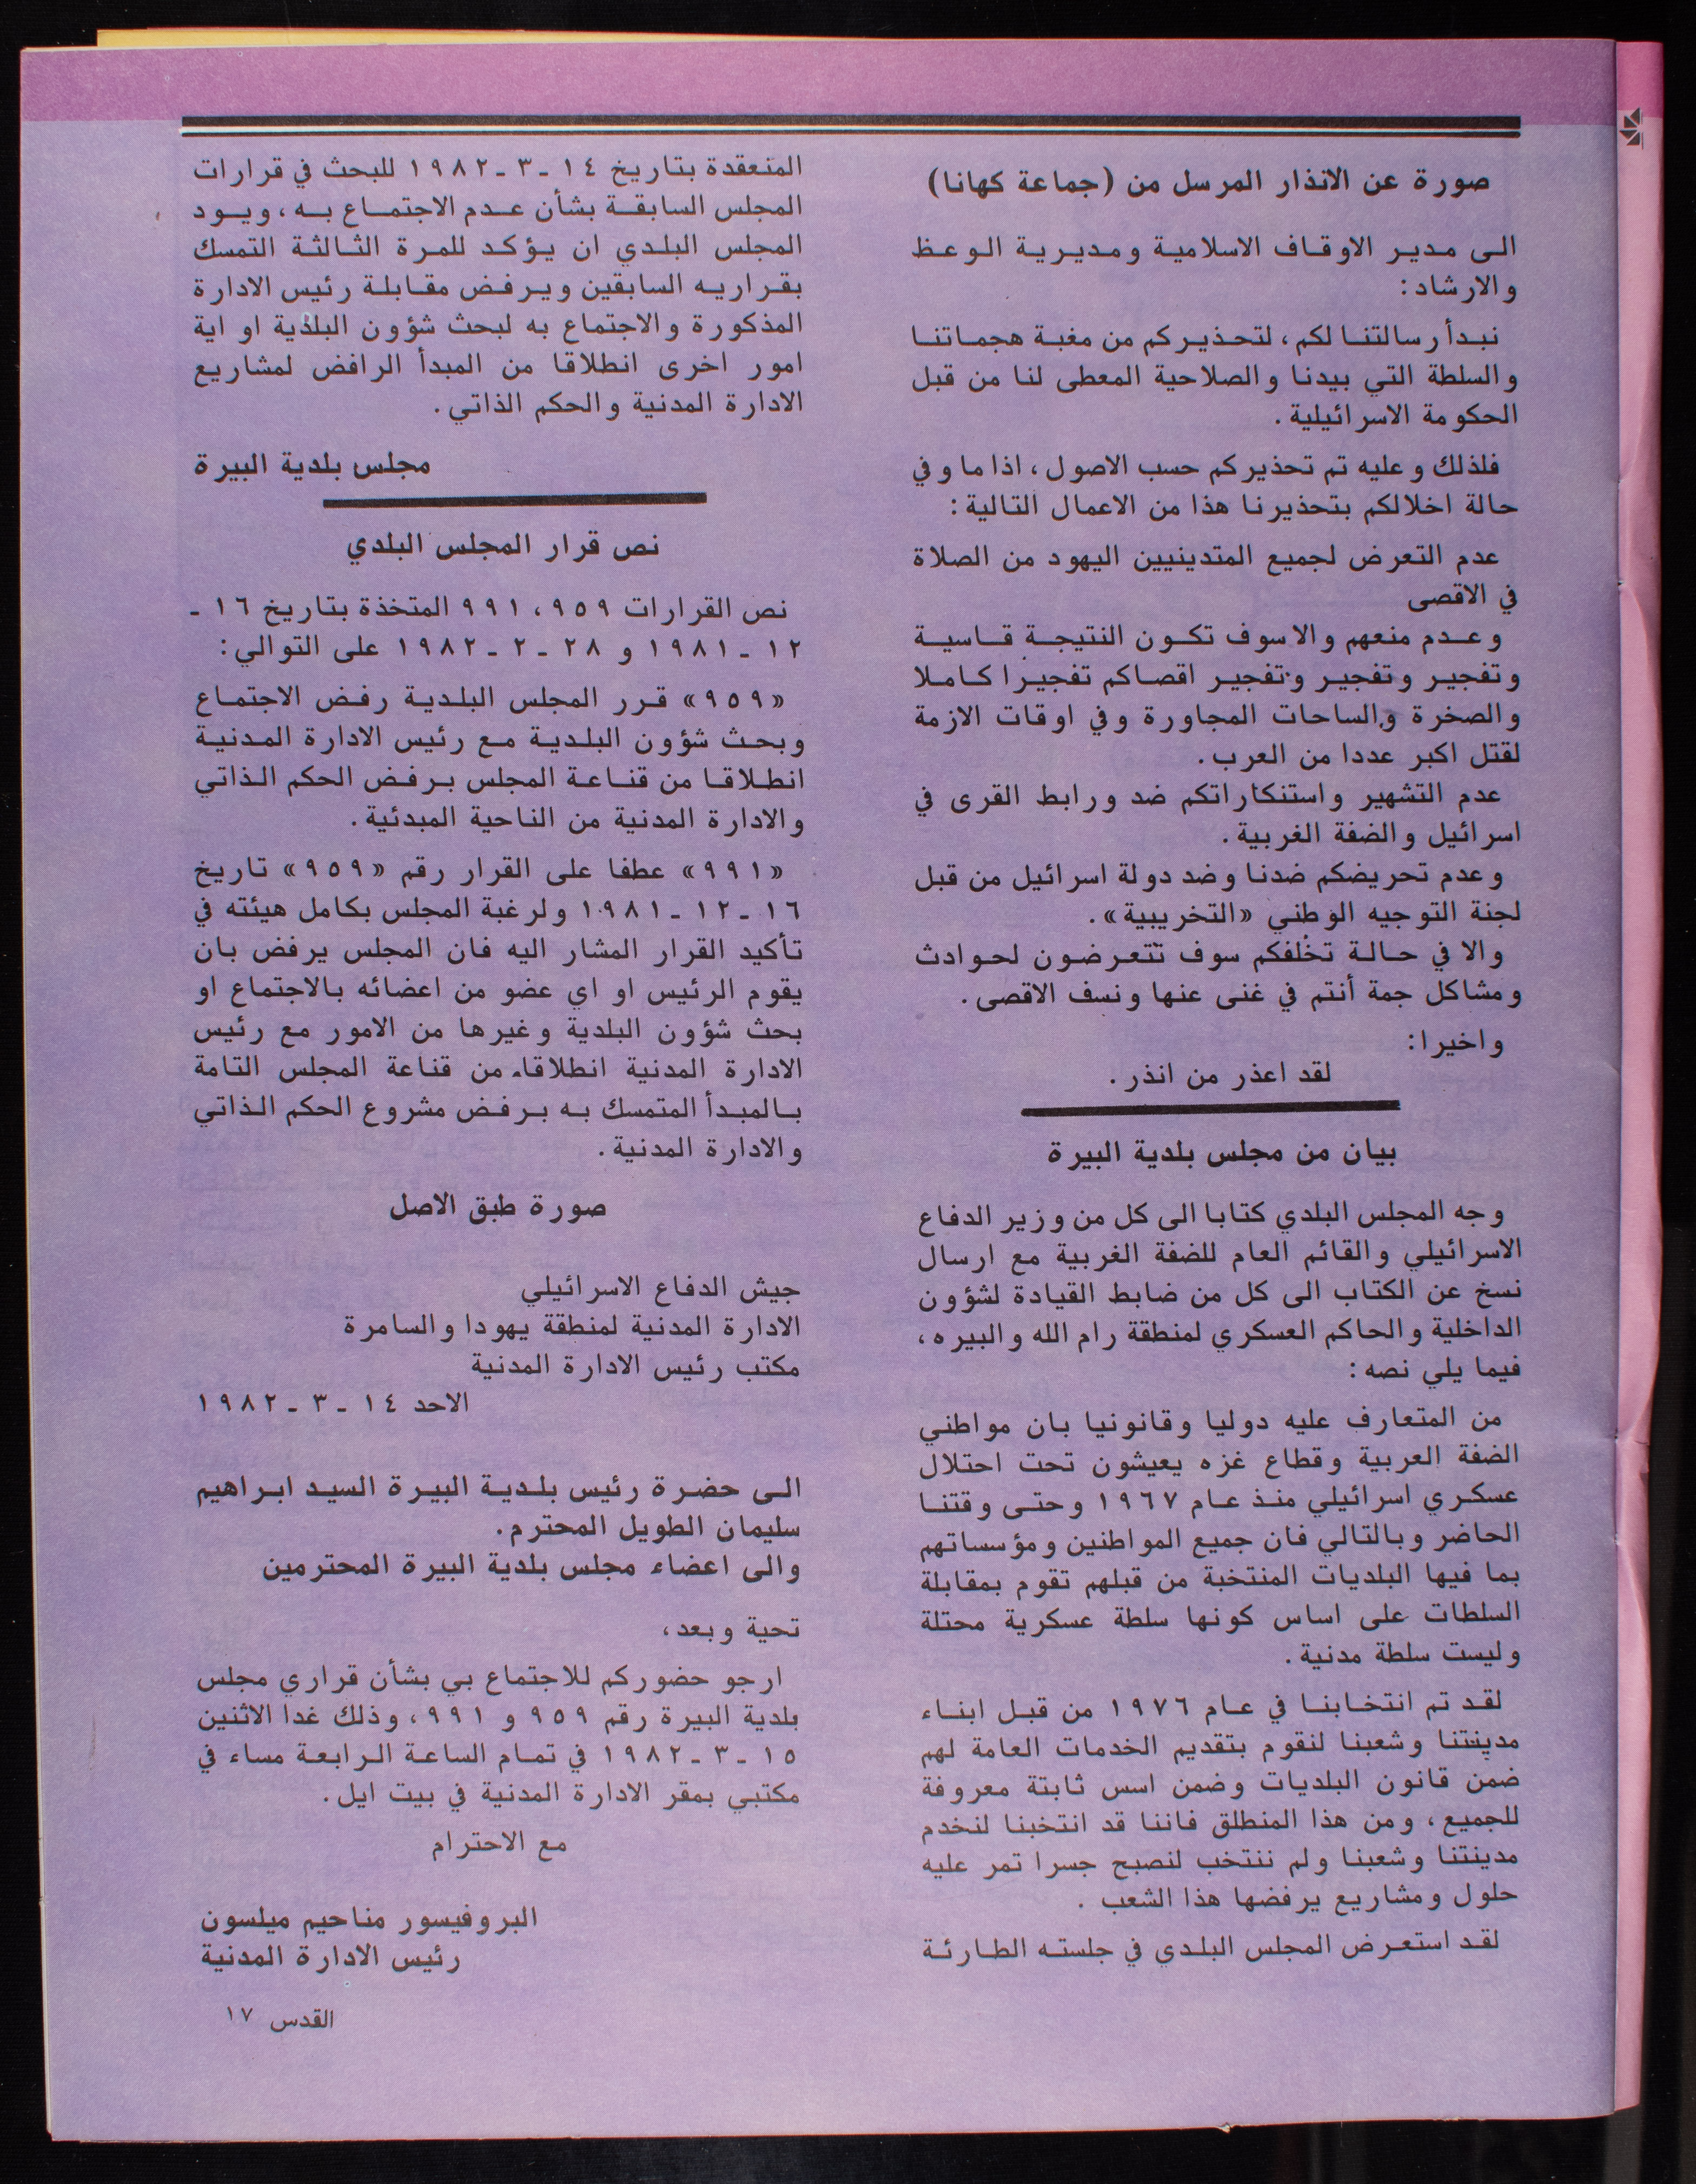 صورة عن الانذار المرسل من (جماعة كهانا)
الى مدير الاوقاف الاسلامية ومديرية الوعظ
والارشاد:
نبدأ رسالتنا لكم، لتحذيركم من مغبة هجماتنا
والسلطة التي بيدنا والصلاحية المعطى لنا من قبل
الحكومة الاسرائيلية.
فلذلك وعليه تم تحذيركم حسب الاصول، اذا ما وفي
حالة اخلالكم بتحذيرنا هذا من الاعمال التالية:
عدم التعرض لجميع المتدينيين اليهود من الصلاة
في الاقصى
وعدم منعهم والا سوف تكون النتيجة قاسية
وتفجير وتفجير وتفجير اقصاكم تفجيرا كاملا
والصخرة والساحات المجاورة وفي اوقات الازمة
لقتل اكبر عددا من العرب.
عدم التشهير واستنكاراتكم ضد ورابط القرى في
اسرائيل والضفة الغربية.
وعدم تحريضكم ضدنا وضد دولة اسرائيل من قبل
لجنة التوجيه الوطني «التخريبية».
والا في حالة تخلفكم سوف تتعرضون لحوادث
ومشاكل جمة أنتم في غنى عنها ونسف الاقصى.
واخيرا:
لقد اعذر من انذر.
بيان من مجلس بلدية البيرة
وجه المجلس البلدي كتابا الى كل من وزير الدفاع
الاسرائيلي والقائم العام للضفة الغربية مع ارسال
نسخ عن الكتاب الى كل من ضابط القيادة لشؤون
الداخلية والحاكم العسكري لمنطقة رام الله والبيره،
فيما يلي نصه:
من المتعارف عليه دوليا وقانونيا بان مواطني
الضفة العربية وقطاع غزه يعيشون تحت احتلال
عسكري اسرائيلي منذ عام ١٩٦٧ وحتى وقتنا
الحاضر وبالتالي فان جميع المواطنين ومؤسساتهم
بما فيها البلديات المنتخبة من قبلهم تقوم بمقابلة
السلطات على اساس كونها سلطة عسكرية محتلة
وليست سلطة مدنية.
لقد تم انتخابنا في عام ١٩٧٦ من قبل ابناء
مدينتنا وشعبنا لنقوم بتقديم الخدمات العامة لهم
ضمن قانون البلديات وضمن اسس ثابتة معروفة
للجميع، ومن هذا المنطلق فاننا قد انتخبنا لنخدم
مدينتنا وشعبنا ولم ننتخب لنصبح جسرا تمر عليه
حلول ومشاريع يرفضها هذا الشعب .
لقد استعرض المجلس البلدي في جلسته الطارئة
المنعقدة بتاريخ ١٤ - ٣ - ١٩٨٢ للبحث في قرارات
المجلس السابقة بشأن عدم الاجتماع به، ويود
المجلس البلدي ان يؤكد للمرة الثالثة التمسك
بقراريه السابقين ويرفض مقابلة رئيس الادارة
المذكورة والاجتماع به لبحث شؤون البلدية او اية
امور اخرى انطلاقا من المبدأ الرافض لمشاريع
الادارة المدنية والحكم الذاتي.
مجلس بلدية البيرة
نص قرار المجلس البلدي
نص القرارات ٩٥٩، ٩٩١ المتخذة بتاريخ ١٦ -
١٢ - ١٩٨١ و ٢٨ - ٢ - ١٩٨٢ على التوالي:
«٩٥٩» قرر المجلس البلدية رفض الاجتماع
وبحث شؤون البلدية مع رئيس الادارة المدنية
انطلاقا من قناعة المجلس برفض الحكم الذاتي
والادارة المدنية من الناحية المبدئية.
«٩٩١» عطفا على القرار رقم «٩٥٩» تاريخ
١٦ - ١٢ - ١٩٨١ ولرغبة المجلس بكامل هيئته في
تأكيد القرار المشار اليه فان المجلس يرفض بان
يقوم الرئيس او اي عضو من اعضائه بالاجتماع او
بحث شؤون البلدية وغيرها من الامور مع رئيس
الادارة المدنية انطلاقا من قناعة المجلس التامة
بالمبدأ المتمسك به برفض مشروع الحكم الذاتي
والادارة المدنية.
صورة طبق الاصل
جيش الدفاع الاسرائيلي
الادارة المدنية لمنطقة يهودا والسامرة
مكتب رئيس الادارة المدنية
الاحد ١٤ - ٣ - ١٩٨٢
الى حضرة رئيس بلدية البيرة السيد ابراهيم
سليمان الطويل المحترم.
والى اعضاء مجلس بلدية البيرة المحترمين
تحية وبعد،
ارجو حضوركم للاجتماع بي بشأن قراري مجلس
بلدية البيرة رقم ٩٥٩ و ٩٩١، وذلك غدا الاثنين
١٥ - ٣ - ١٩٨٢ في تمام الساعة الرابعة مساء في
مكتبي بمقر الادارة المدنية في بيت ايل.
مع الاحترام
البروفيسور مناحيم ميلسون
رئيس الادارة المدنية
القدس ١٧